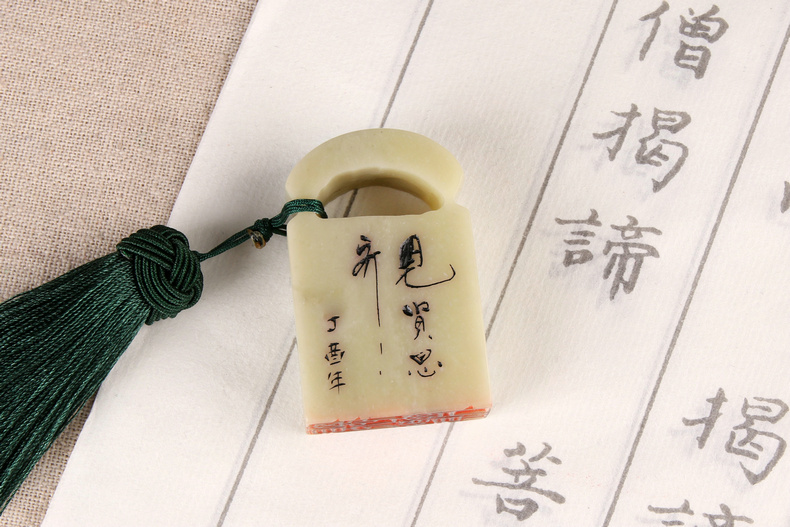 揭諦
僧揭諦
菩
見賢思
齐
丁酉年